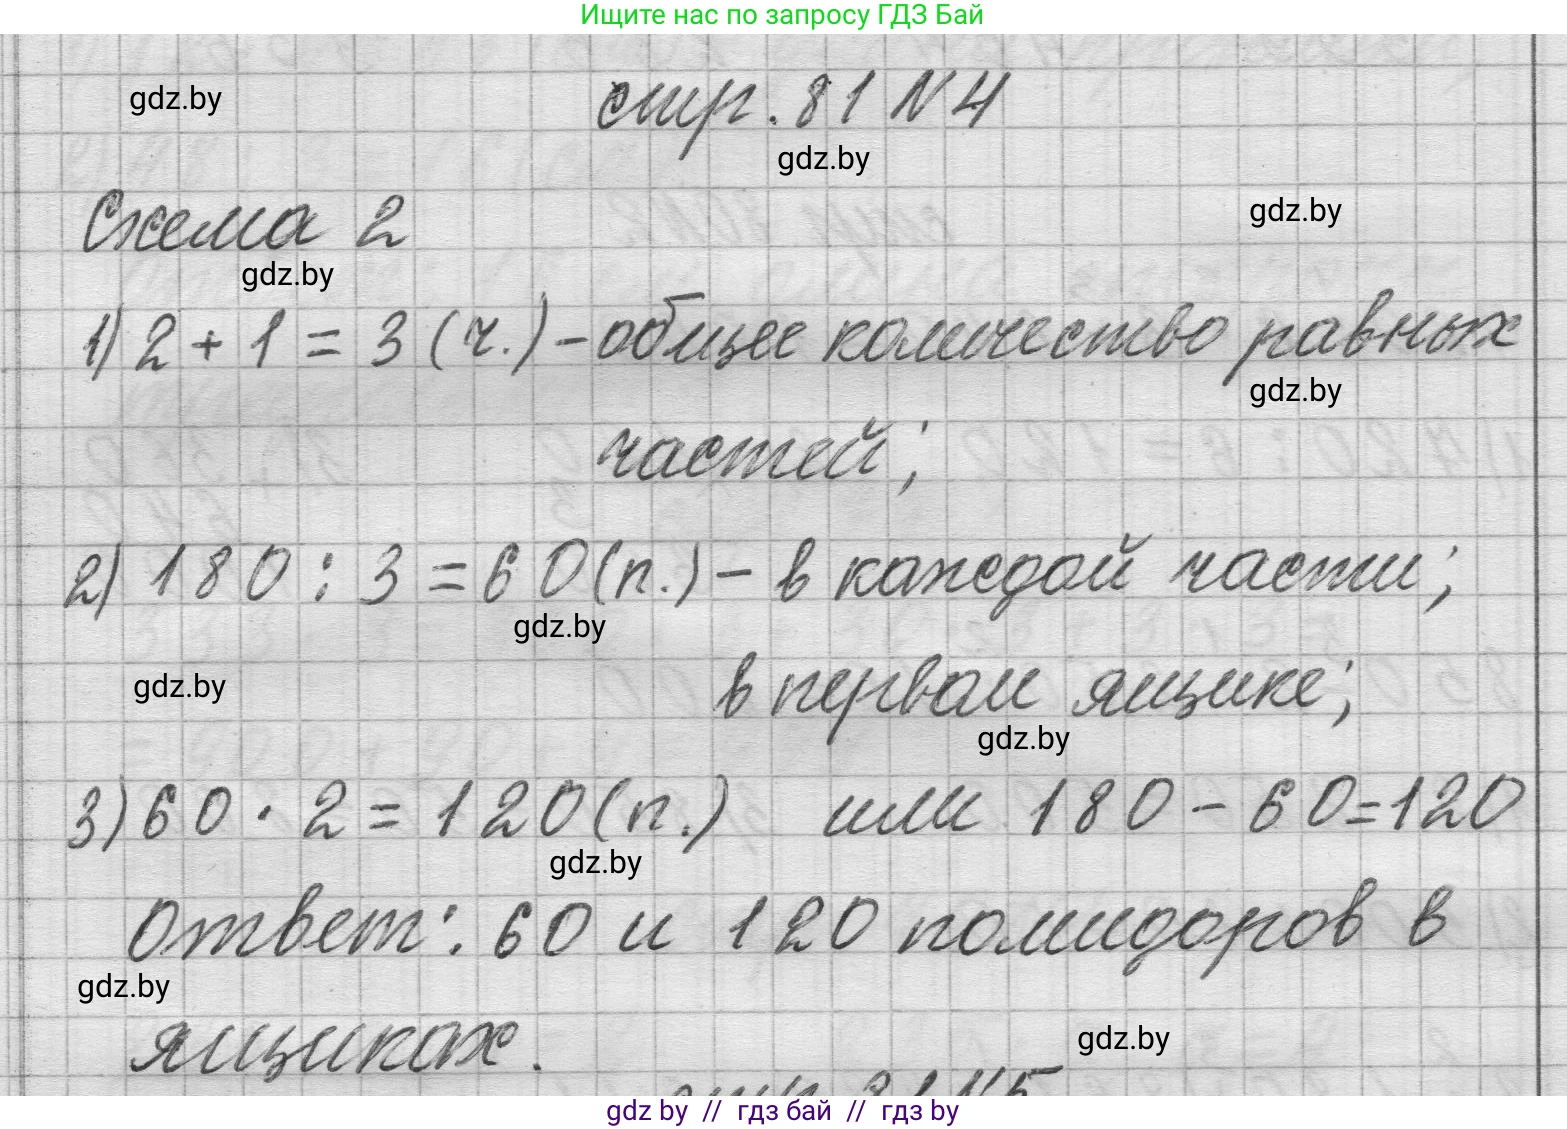 Ищите нас по запросу ГДЗ Бай
gdz.by
стр. 81 N 4
gdz.by
gdz.by
Схема 2
gdz.by
1) 2 + 1 = 3 (ч.) - общее количество равных
gdz.by
частей;
2) 180 : 3 = 60 (п.) - в каждой части;
gdz.by
gdz.by
в первом ящике;
gdz.by
3) 60 · 2 = 120 (п.) или 180 - 60 = 120
gdz.by
Ответ: 60 и 120 помидоров в
gdz.by
ящиках.
gdz.by
стр. 81 N 5
gdz by // гдз бай // гдз by